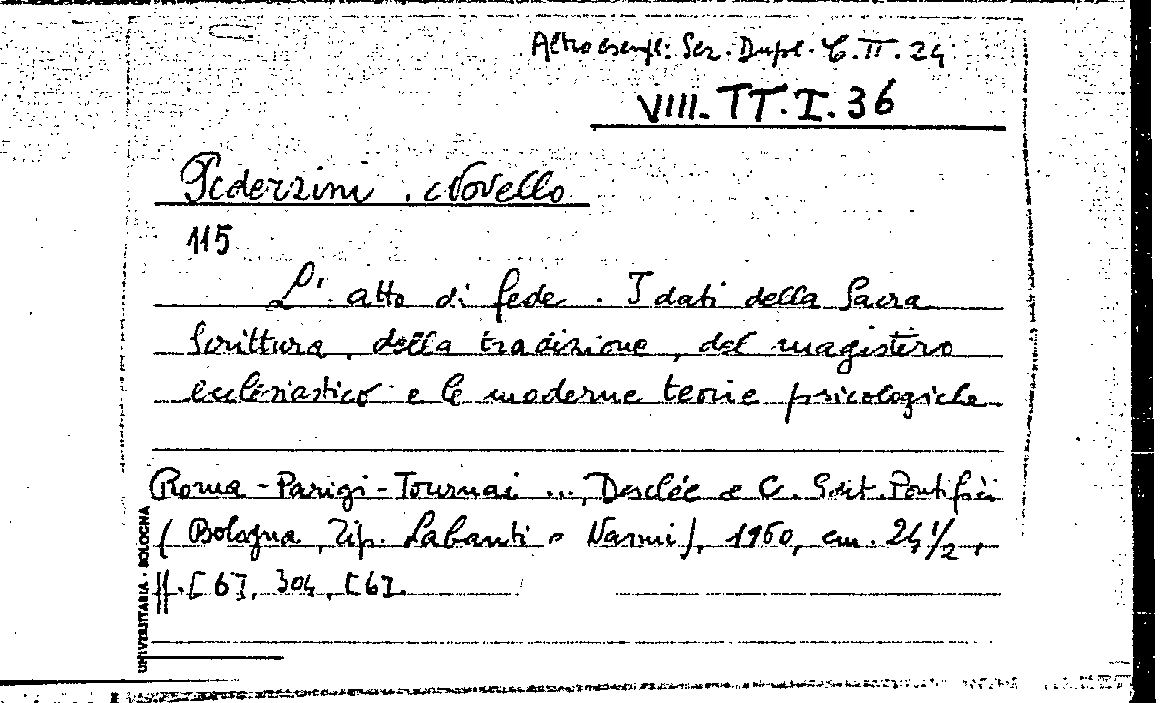 Altro esempl: Sez. Dupl. C. II. 24
VIII. TT. I. 36
Pederzini Novello
115
L' atto di fede. I dati della Sacra
Scrittura, della tradizione, del magistero
ecclesiastico e le moderne teorie psicologiche
Roma - Parigi - Tournai ..., Desclée e C. Edit. Pontifici
(Bologna, Tip. Labanti e Nanni), 1960, cm. 24 1/2,
pp. [6], 304, [6].
UNIVERSITARIA - BOLOGNA